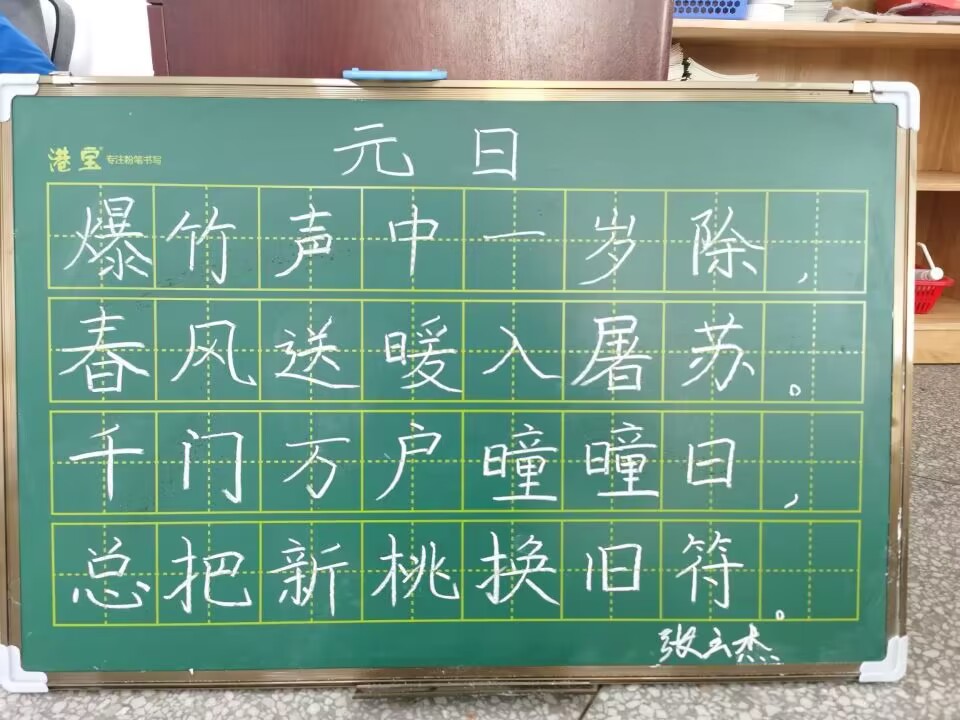 元日
港宝 专注粉笔书写
爆竹声中一岁除,
春风送暖入屠苏。
千门万户曈曈日,
总把新桃换旧符。
张云杰